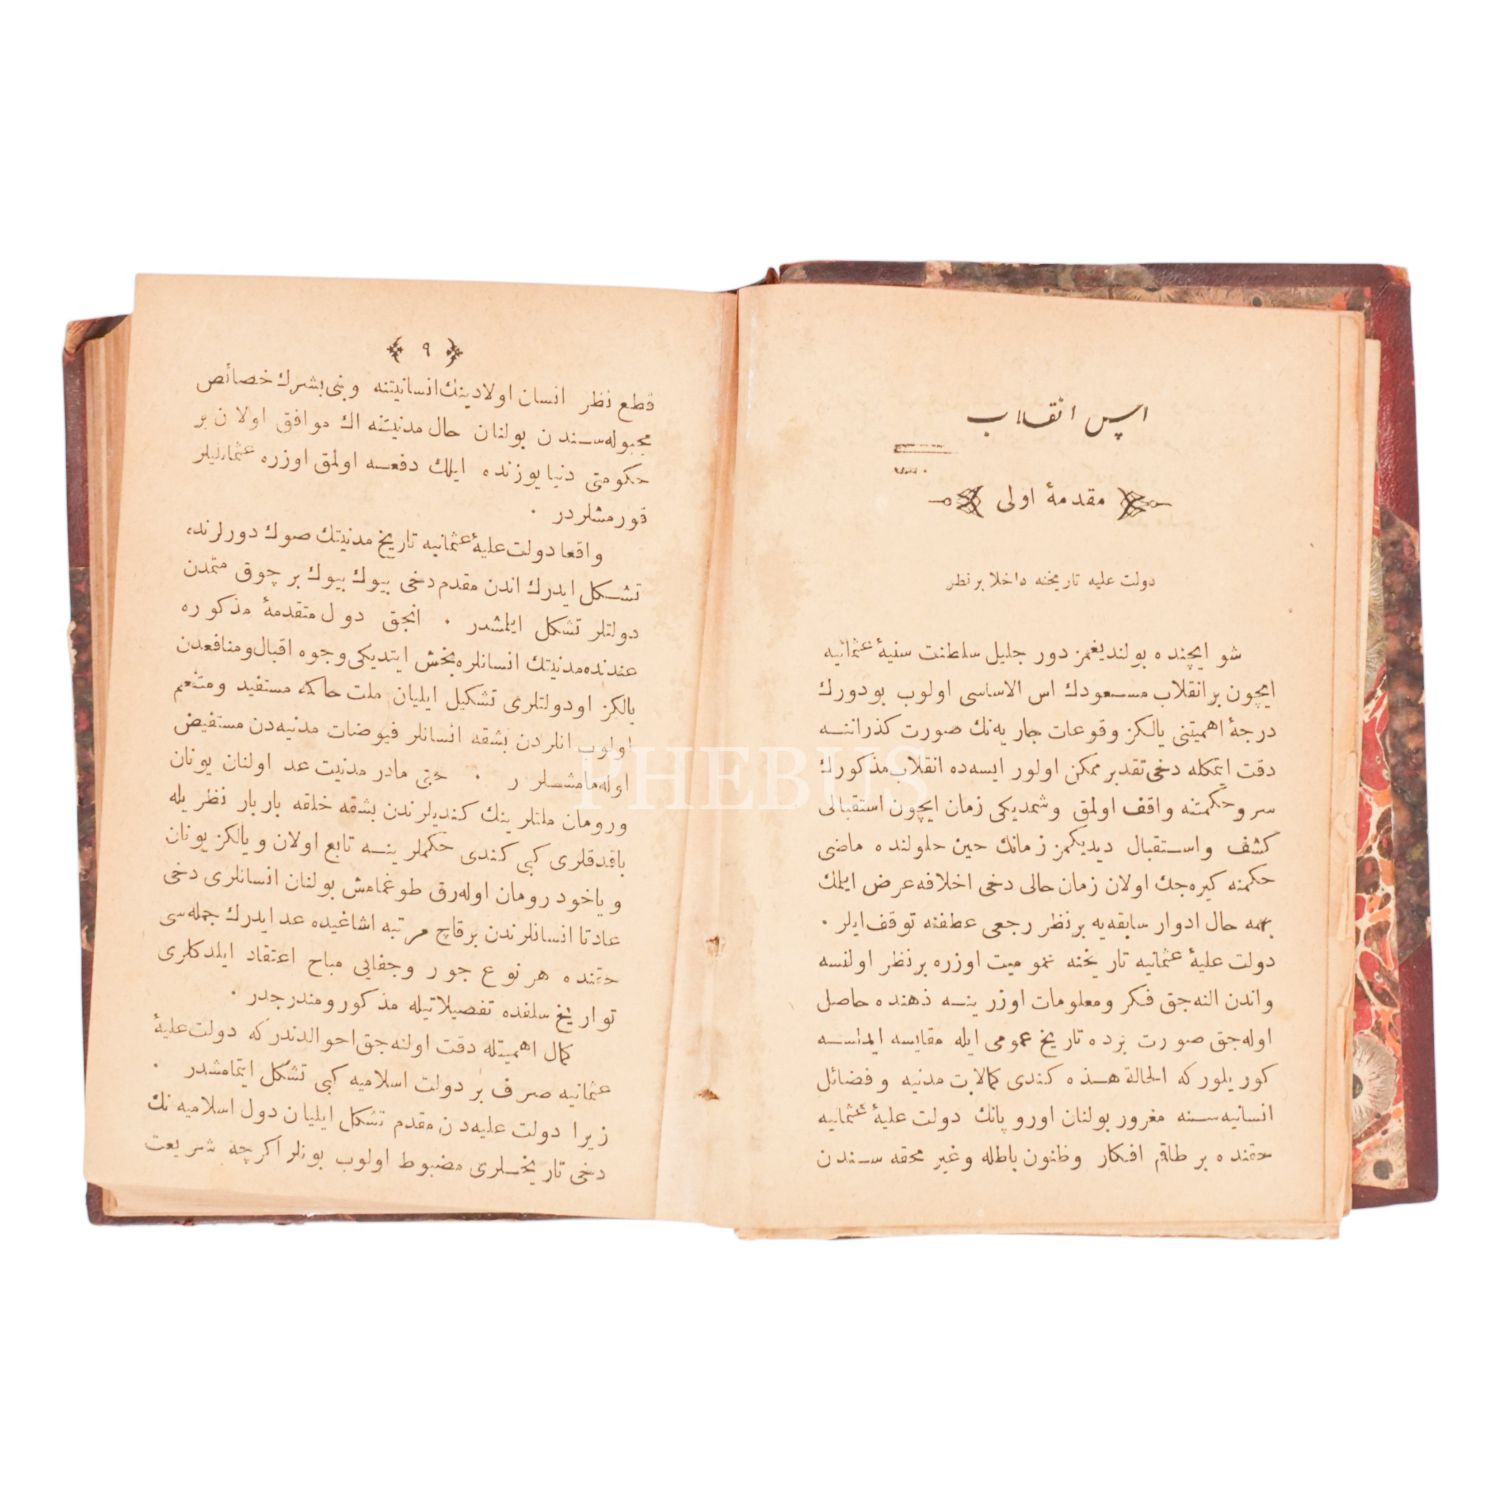 اس انقلاب
مقدمهٔ اولی
دولت علیه تاریخنه داخلا بر نظر
شو ایچنده بولندیغمز دور جلیل سلطنت سنیهٔ عثمانیه
ایچون بر انقلاب مسعودك اس الاساسی اولوب بو دورك
درجهٔ اهمیتنی یالکز وقوعات جاریه‌نك صورت کذراننه
دقت ایتمکله دخی تقدیر ممکن اولور ایسه‌ده انقلاب مذکورك
سر و حکمتنه واقف اولمق و شمدیکی زمان ایچون استقبالی
کشف و استقبال دیدیکمز زمانك حین حلولنده ماضی
حکمنه کیره‌جك اولان زمان حالی دخی اخلافه عرض ایلمك
بهمه حال ادوار سابقه‌یه بر نظر رجعی عطفنه توقف ایلر .
دولت علیهٔ عثمانیه تاریخنه عمومیت اوزره بر نظر اولنسه
واندن النه‌جق فکر و معلومات اوزرینه ذهنده حاصل
اوله‌جق صورت بزده تاریخ عمومی ایله مقایسه ایدلسه
کوریلور که الحالة هذه کندی کمالات مدنیه و فضائل
انسانیه‌سنه مغرور بولنان اوروپانك دولت علیهٔ عثمانیه
حقنده بر طاقم افکار و ظنون باطله و غیر محقه‌سندن
﴿ ٩ ﴾
قطع نظر انسان اولادینك انسانیتنه و بنی بشرك خصائص
مجبوله‌سندن بولنان حال مدنیتنه اك موافق اولان بر
حکومتی دنیا یوزنده ایلك دفعه اولمق اوزره عثمانلیلر
قورمشلردر .
واقعا دولت علیهٔ عثمانیه تاریخ مدنیتك صوك دورلرنده
تشکل ایدرك اندن مقدم دخی بیوك بیوك بر چوق متمدن
دولتلر تشکل ایلمشدر . انجق دول متقدمهٔ مذکوره
عندنده مدنیتك انسانلره بخش ایتدیکی وجوه اقبال و منافعدن
یالکز او دولتلری تشکیل ایلیان ملت حاکمه مستفید و متنعم
اولوب انلردن بشقه انسانلر فیوضات مدنیه‌دن مستفیض
اوله‌مامشلردر . حتی مادر مدنیت عد اولنان یونان
و رومان ملتلرینك کندیلرندن بشقه خلقه باربار نظریله
باقدقلری کبی کندی حکملرینه تابع اولان و یالکز یونان
و یاخود رومان اوله‌رق طوغمامش بولنان انسانلری دخی
عادتا انسانلرندن بر قاچ مرتبه اشاغیده عد ایدرك جمله‌سی
حقنده هر نوع جور و جفایی مباح اعتقاد ایلدکلری
تواریخ سلفده تفصیلاتیله مذکور و مندرجدر .
کمال اهمیتله دقت اولنه‌جق احوالدندر که دولت علیهٔ
عثمانیه صرف بر دولت اسلامیه کبی تشکل ایتمامشدر .
زیرا دولت علیه‌دن مقدم تشکل ایلیان دول اسلامیه‌نك
دخی تاریخلری مضبوط اولوب بونلر اکرچه شریعت
PHEBUS